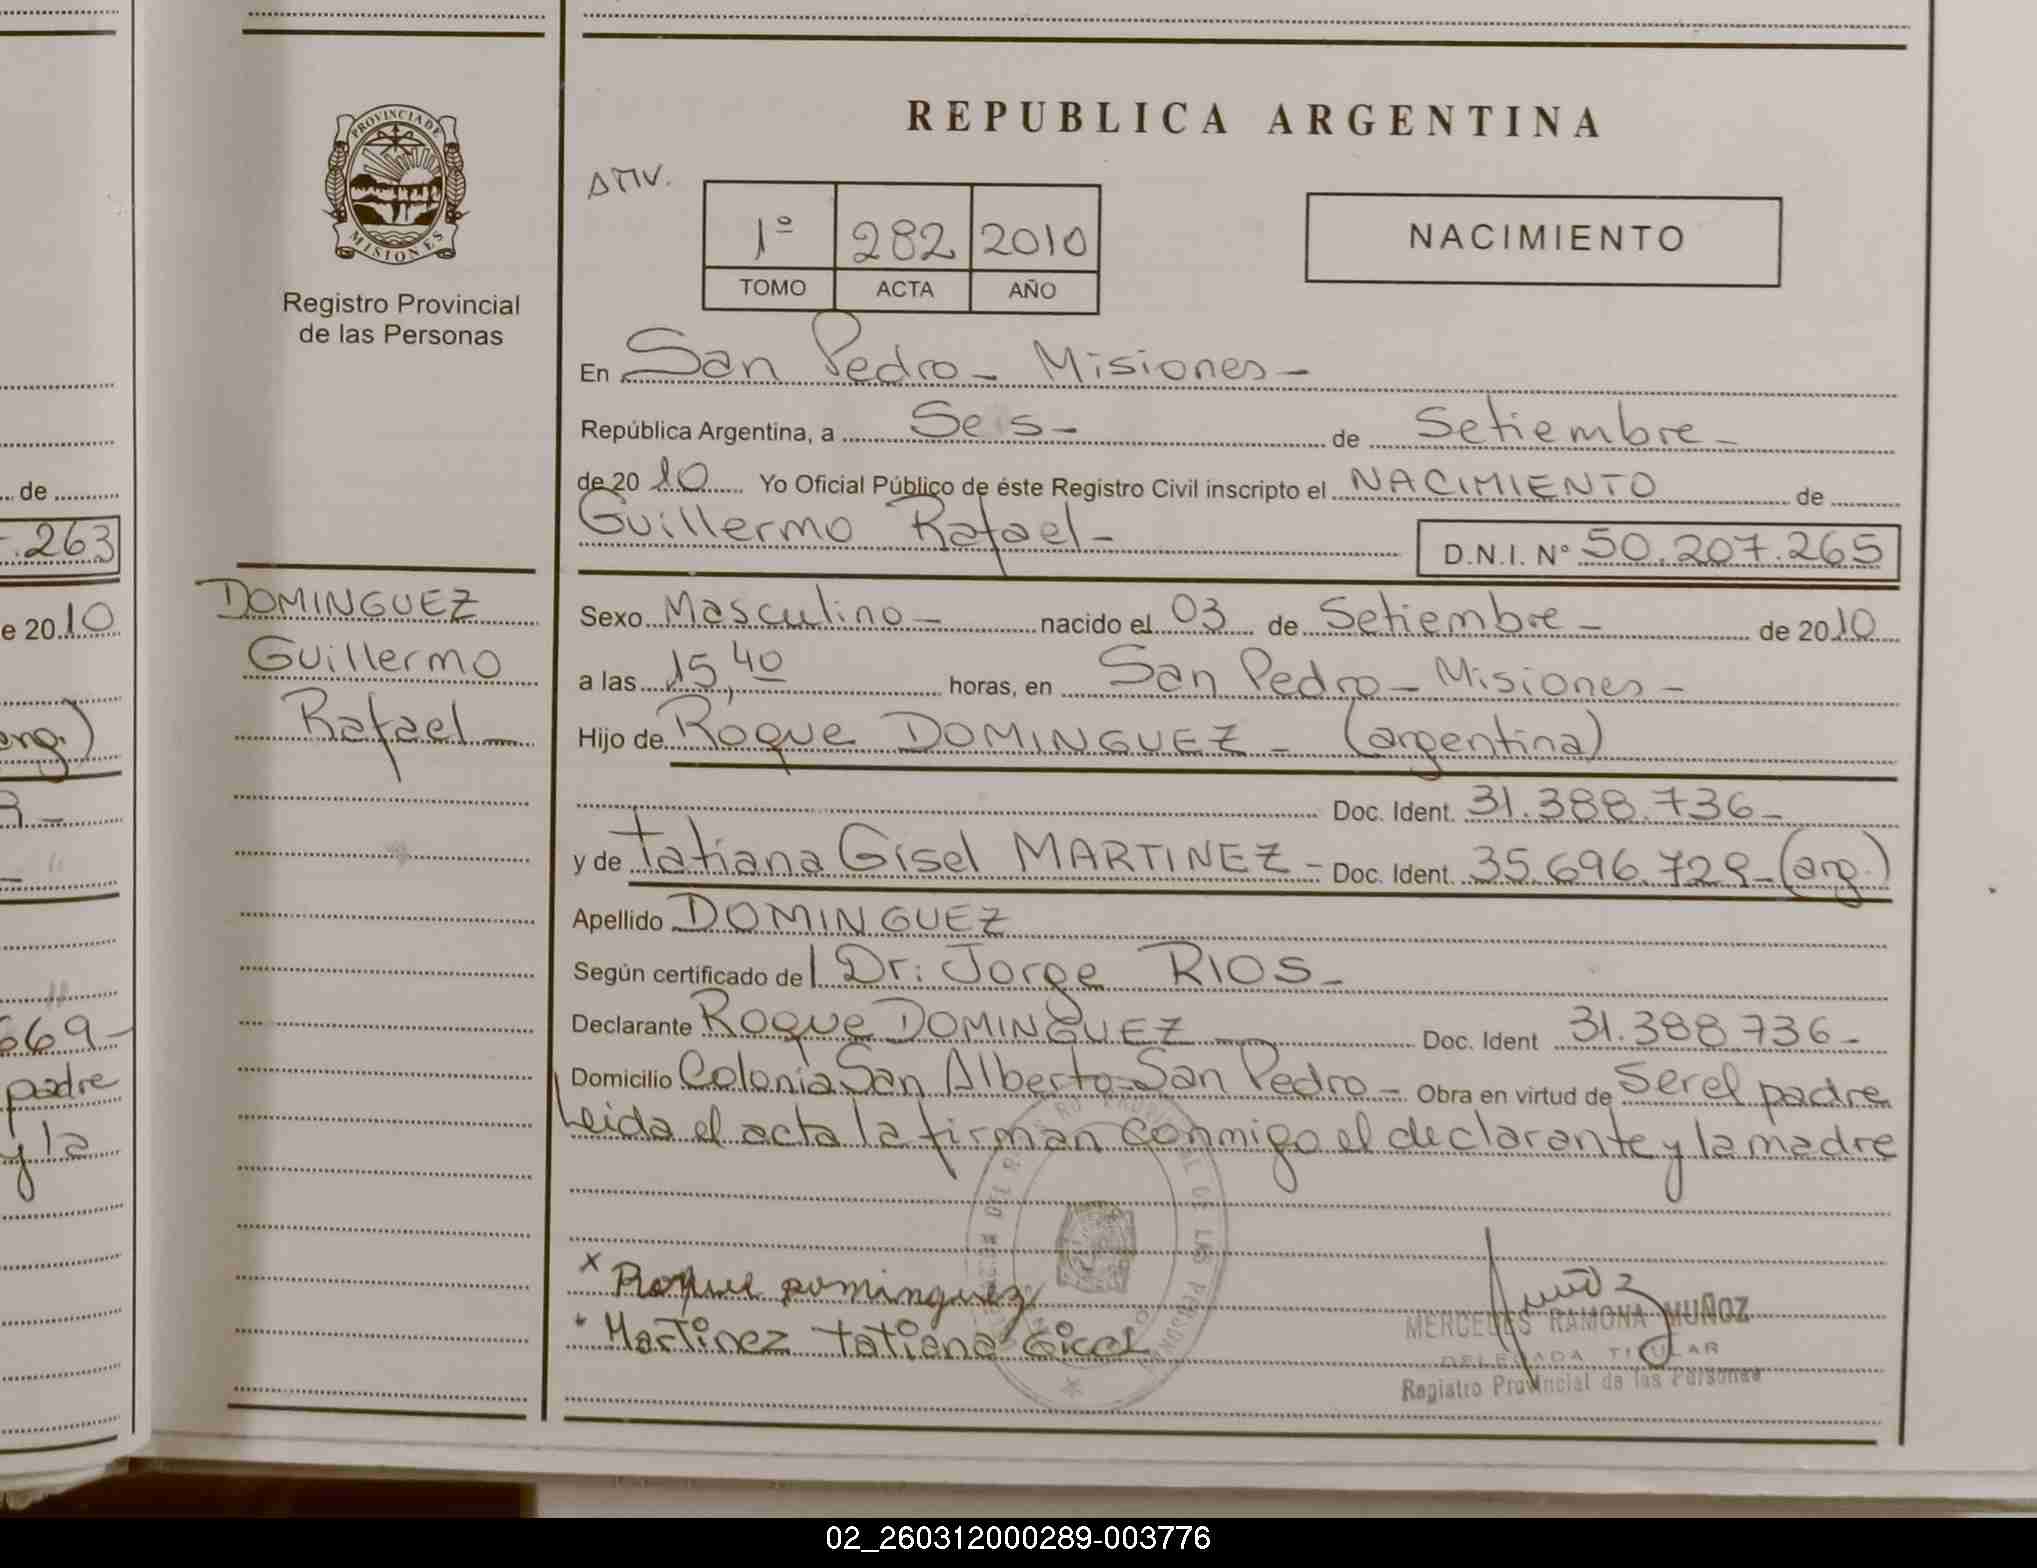 REPUBLICA ARGENTINA
PROVINCIA DE
MISIONES
Registro Provincial
de las Personas
1º 282 2010
TOMO ACTA AÑO
NACIMIENTO
En San Pedro - Misiones -
República Argentina, a Seis - de Setiembre -
de 20 10 Yo Oficial Público de éste Registro Civil inscripto el NACIMIENTO de
Guillermo Rafael - D.N.I. Nº 50.207.265
DOMINGUEZ
Guillermo
Rafael -
Sexo Masculino - nacido el 03 de Setiembre - de 2010
a las 15,40 horas, en San Pedro - Misiones -
Hijo de Roque DOMINGUEZ - (argentina)
Doc. Ident. 31.388.736 -
y de Tatiana Gisel MARTINEZ - Doc. Ident. 35.696.729 - (arg.)
Apellido DOMINGUEZ
Según certificado del Dr: Jorge RIOS -
Declarante Roque DOMINGUEZ Doc. Ident 31.388.736 -
Domicilio Colonia San Alberto - San Pedro - Obra en virtud de Ser el padre
Leida el acta la firman conmigo el declarante y la madre
x Roque Dominguez
Martinez Tatiana Gicel
MERCEDES RAMONA MUÑOZ
DELEGADA TITULAR
Registro Provincial de las Personas
de
.263
e 2010
arg.)
669 -
padre
y la
02_260312000289-003776